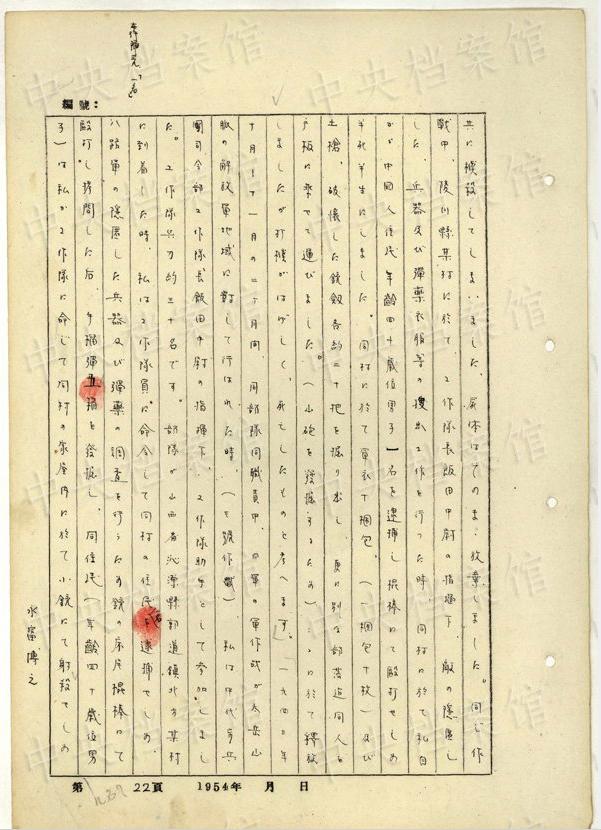 編號:
共に撲殺してしまいました。屍体はそのまゝ放棄しました。同じ作
戦中、陵川縣某村に於て、工作隊長飯田中尉の指揮下、敵の隠匿し
した、兵器及び彈薬衣服等の捜出工作を行った時、同村に於て私自
らが中国人住民年齢四十歳位男子一名を逮捕し棍棒にて毆打せしめ
半死半生にしました。同村に於て軍衣十梱包(一梱包十枚)及び
土槍、破壊した銃剣各約二十挺を掘り出し、更に別な部落迄同人を
戸板に乗せて運びました。(山砲を発掘するため)こゝに於て釈放
しましたが打撲がはげしく、死亡したものと考へます。一九四〇年
十月し十一月の二ヶ月間、同部隊同職員中、日軍の軍作戦が太岳山
脈の解放軍地域に對して行はれた時、私は
團司令部工作隊長飯田中尉の指揮下、工作隊助手として参加しまし
た。工作隊兵力約三十名です。部隊が山西省沁源縣郭道鎮北方某村
に到着した時、私は工作隊員に命令して同村の住民一名を逮捕せしめ、
八路軍の隠匿した兵器及び彈薬の調査を行うため銃の床尾棍棒にて
毆打し拷問した后、手榴彈五箱を発掘し、同住民(年齢四十歳位男
子)は私が工作隊に命じて同村の家屋内に於て小銃にて射殺せしめ
永富博之
第 22頁 1954年 月 日
中央档案馆